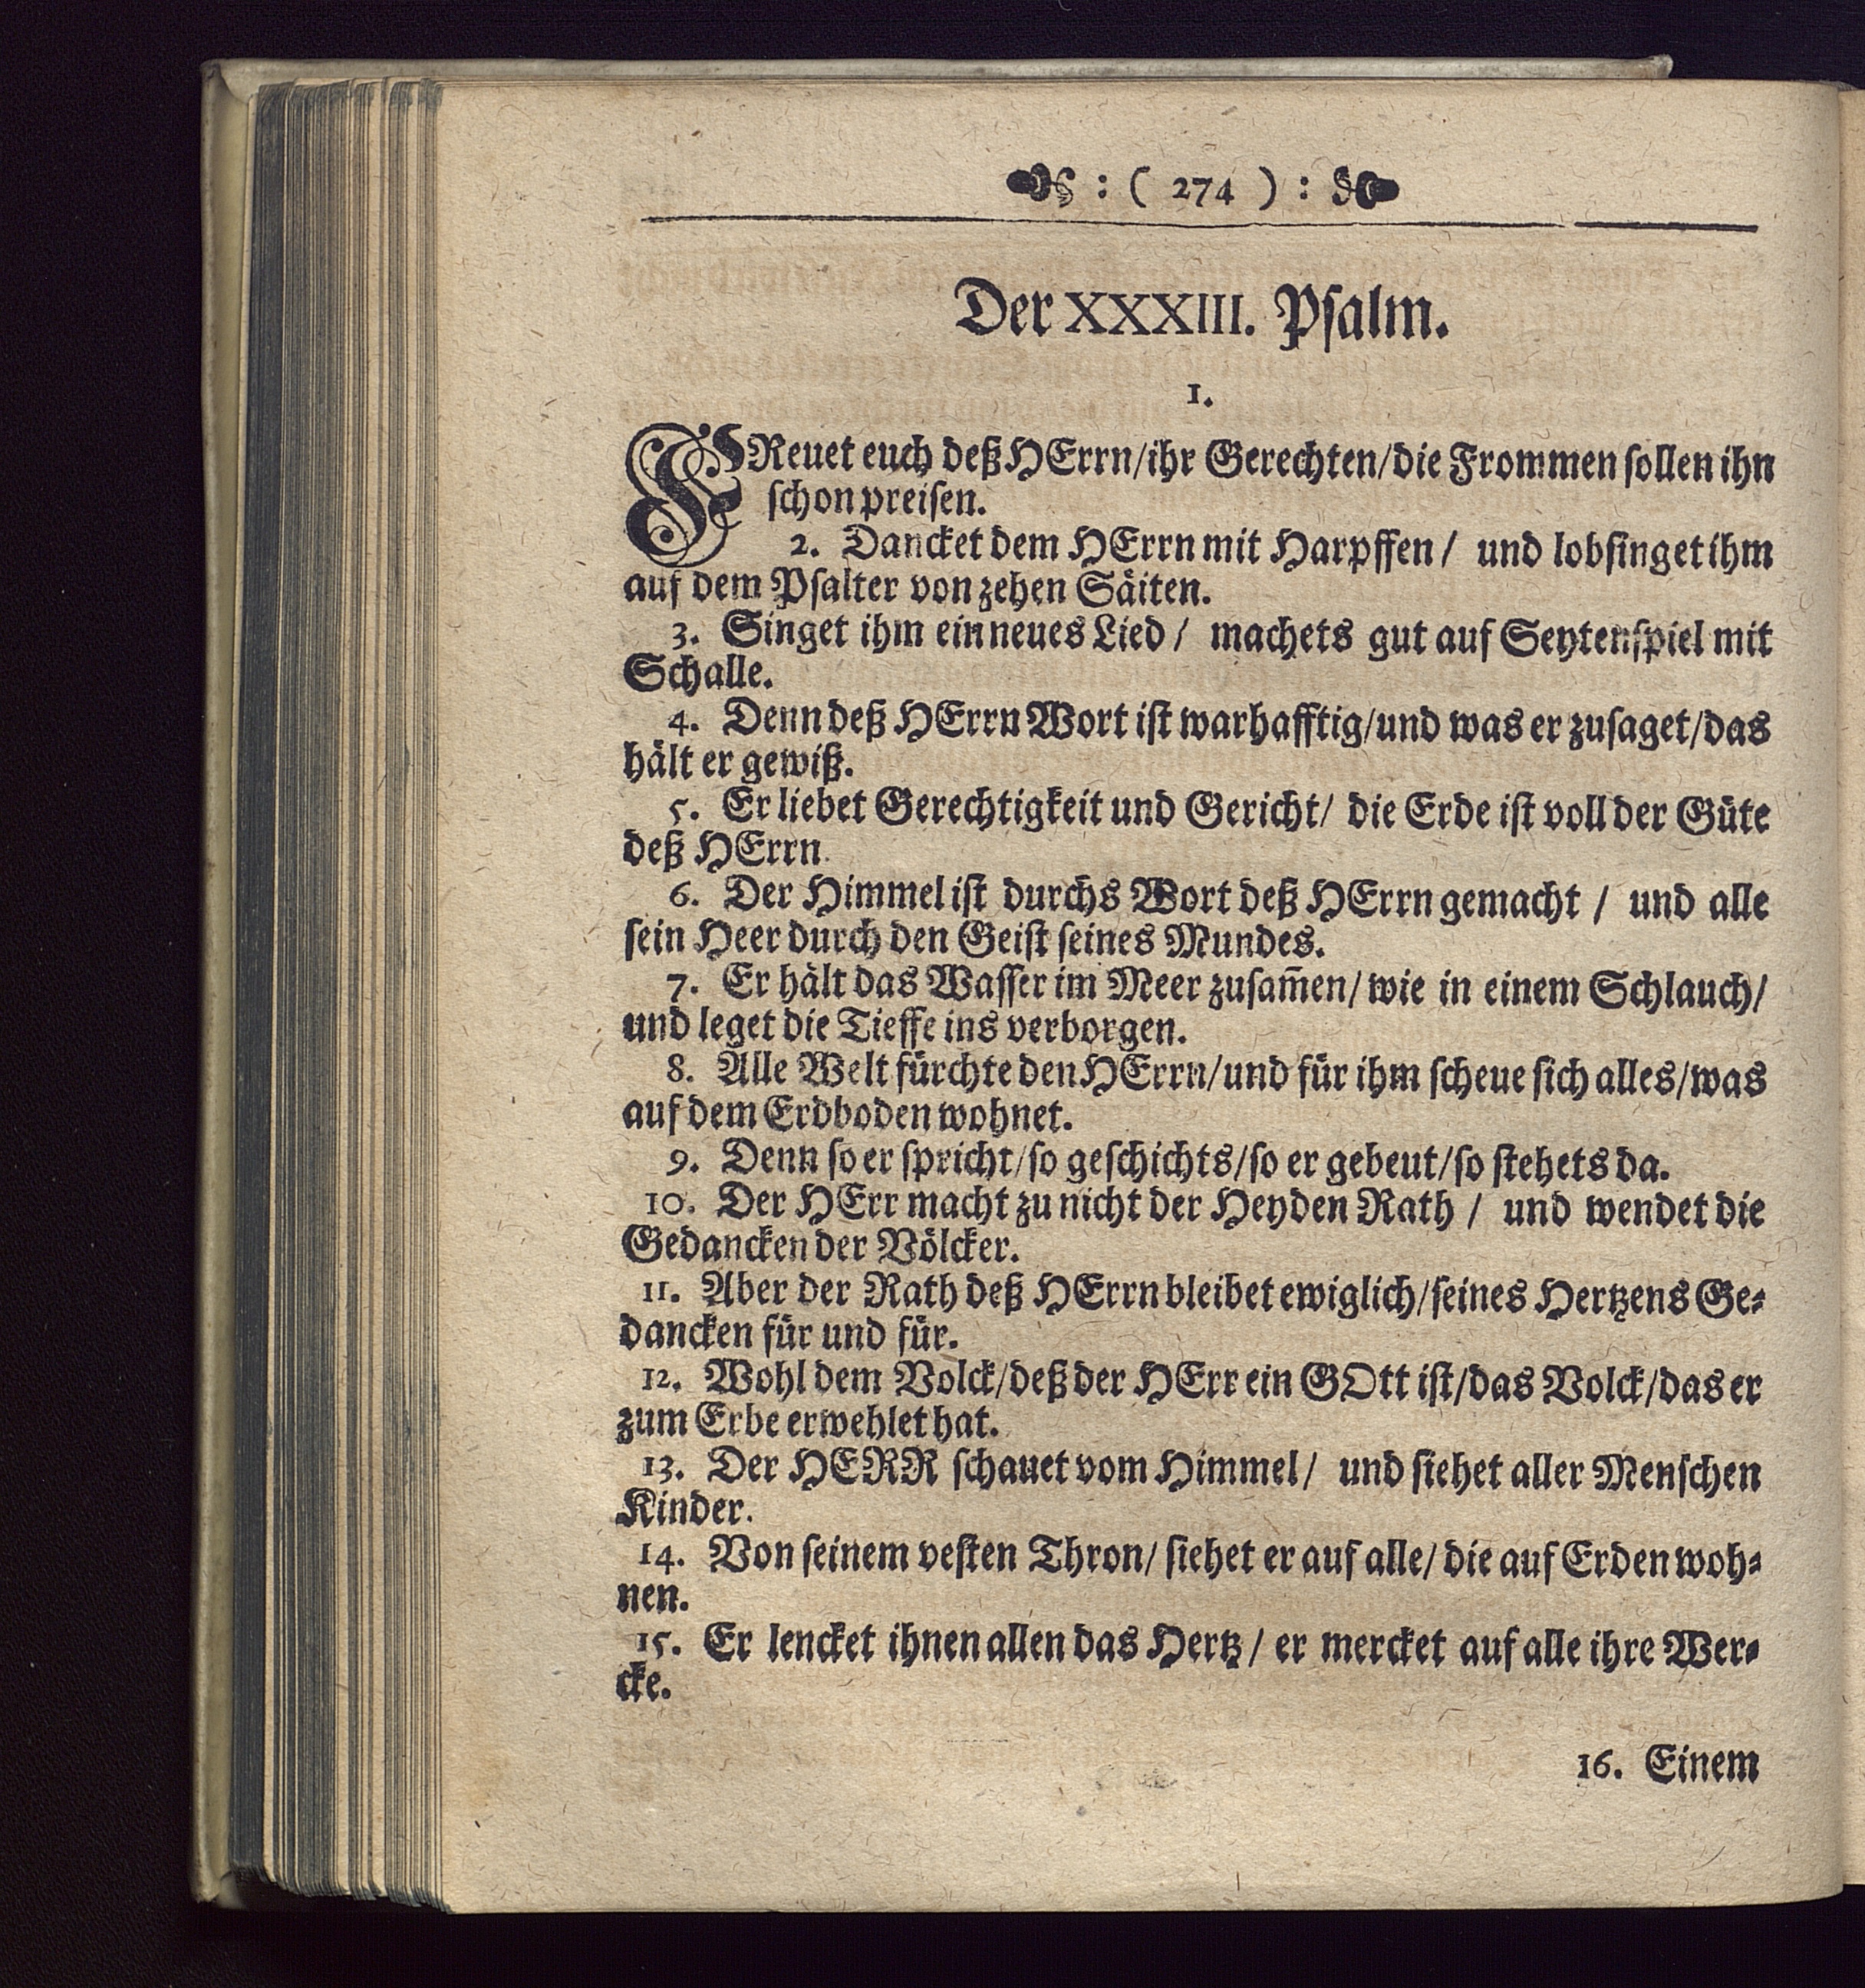 : ( 274 ) :
Der XXXIII. Pſalm.
1.
FReuet euch deß HErrn/ihr Gerechten/die Frommen ſollen ihn
ſchon preiſen.
2. Dancket dem HErrn mit Harpffen/ und lobſinget ihm
auf dem Pſalter von zehen Säiten.
3. Singet ihm ein neues Lied/ machets gut auf Seytenſpiel mit
Schalle.
4. Denn deß HErrn Wort iſt warhafftig/und was er zuſaget/das
hält er gewiß.
5. Er liebet Gerechtigkeit und Gericht/ die Erde iſt voll der Güte
deß HErrn.
6. Der Himmel iſt durchs Wort deß HErrn gemacht / und alle
ſein Heer durch den Geiſt ſeines Mundes.
7. Er hält das Waſſer im Meer zuſam̄en/ wie in einem Schlauch/
und leget die Tieffe ins verborgen.
8. Alle Welt fürchte den HErrn/und für ihm ſcheue ſich alles/was
auf dem Erdboden wohnet.
9. Denn ſo er ſpricht/ſo geſchichts/ſo er gebeut/ſo ſtehets da.
10. Der HErr macht zu nicht der Heyden Rath / und wendet die
Gedancken der Völcker.
11. Aber der Rath deß HErrn bleibet ewiglich/ſeines Hertzens Ge⸗
dancken für und für.
12. Wohl dem Volck/deß der HErr ein GOtt iſt/das Volck/das er
zum Erbe erwehlet hat.
13. Der HERR ſchauet vom Himmel/ und ſiehet aller Menſchen
Kinder.
14. Von ſeinem veſten Thron/ ſiehet er auf alle/ die auf Erden woh⸗
nen.
15. Er lencket ihnen allen das Hertz/ er mercket auf alle ihre Wer⸗
cke.
16. Einem